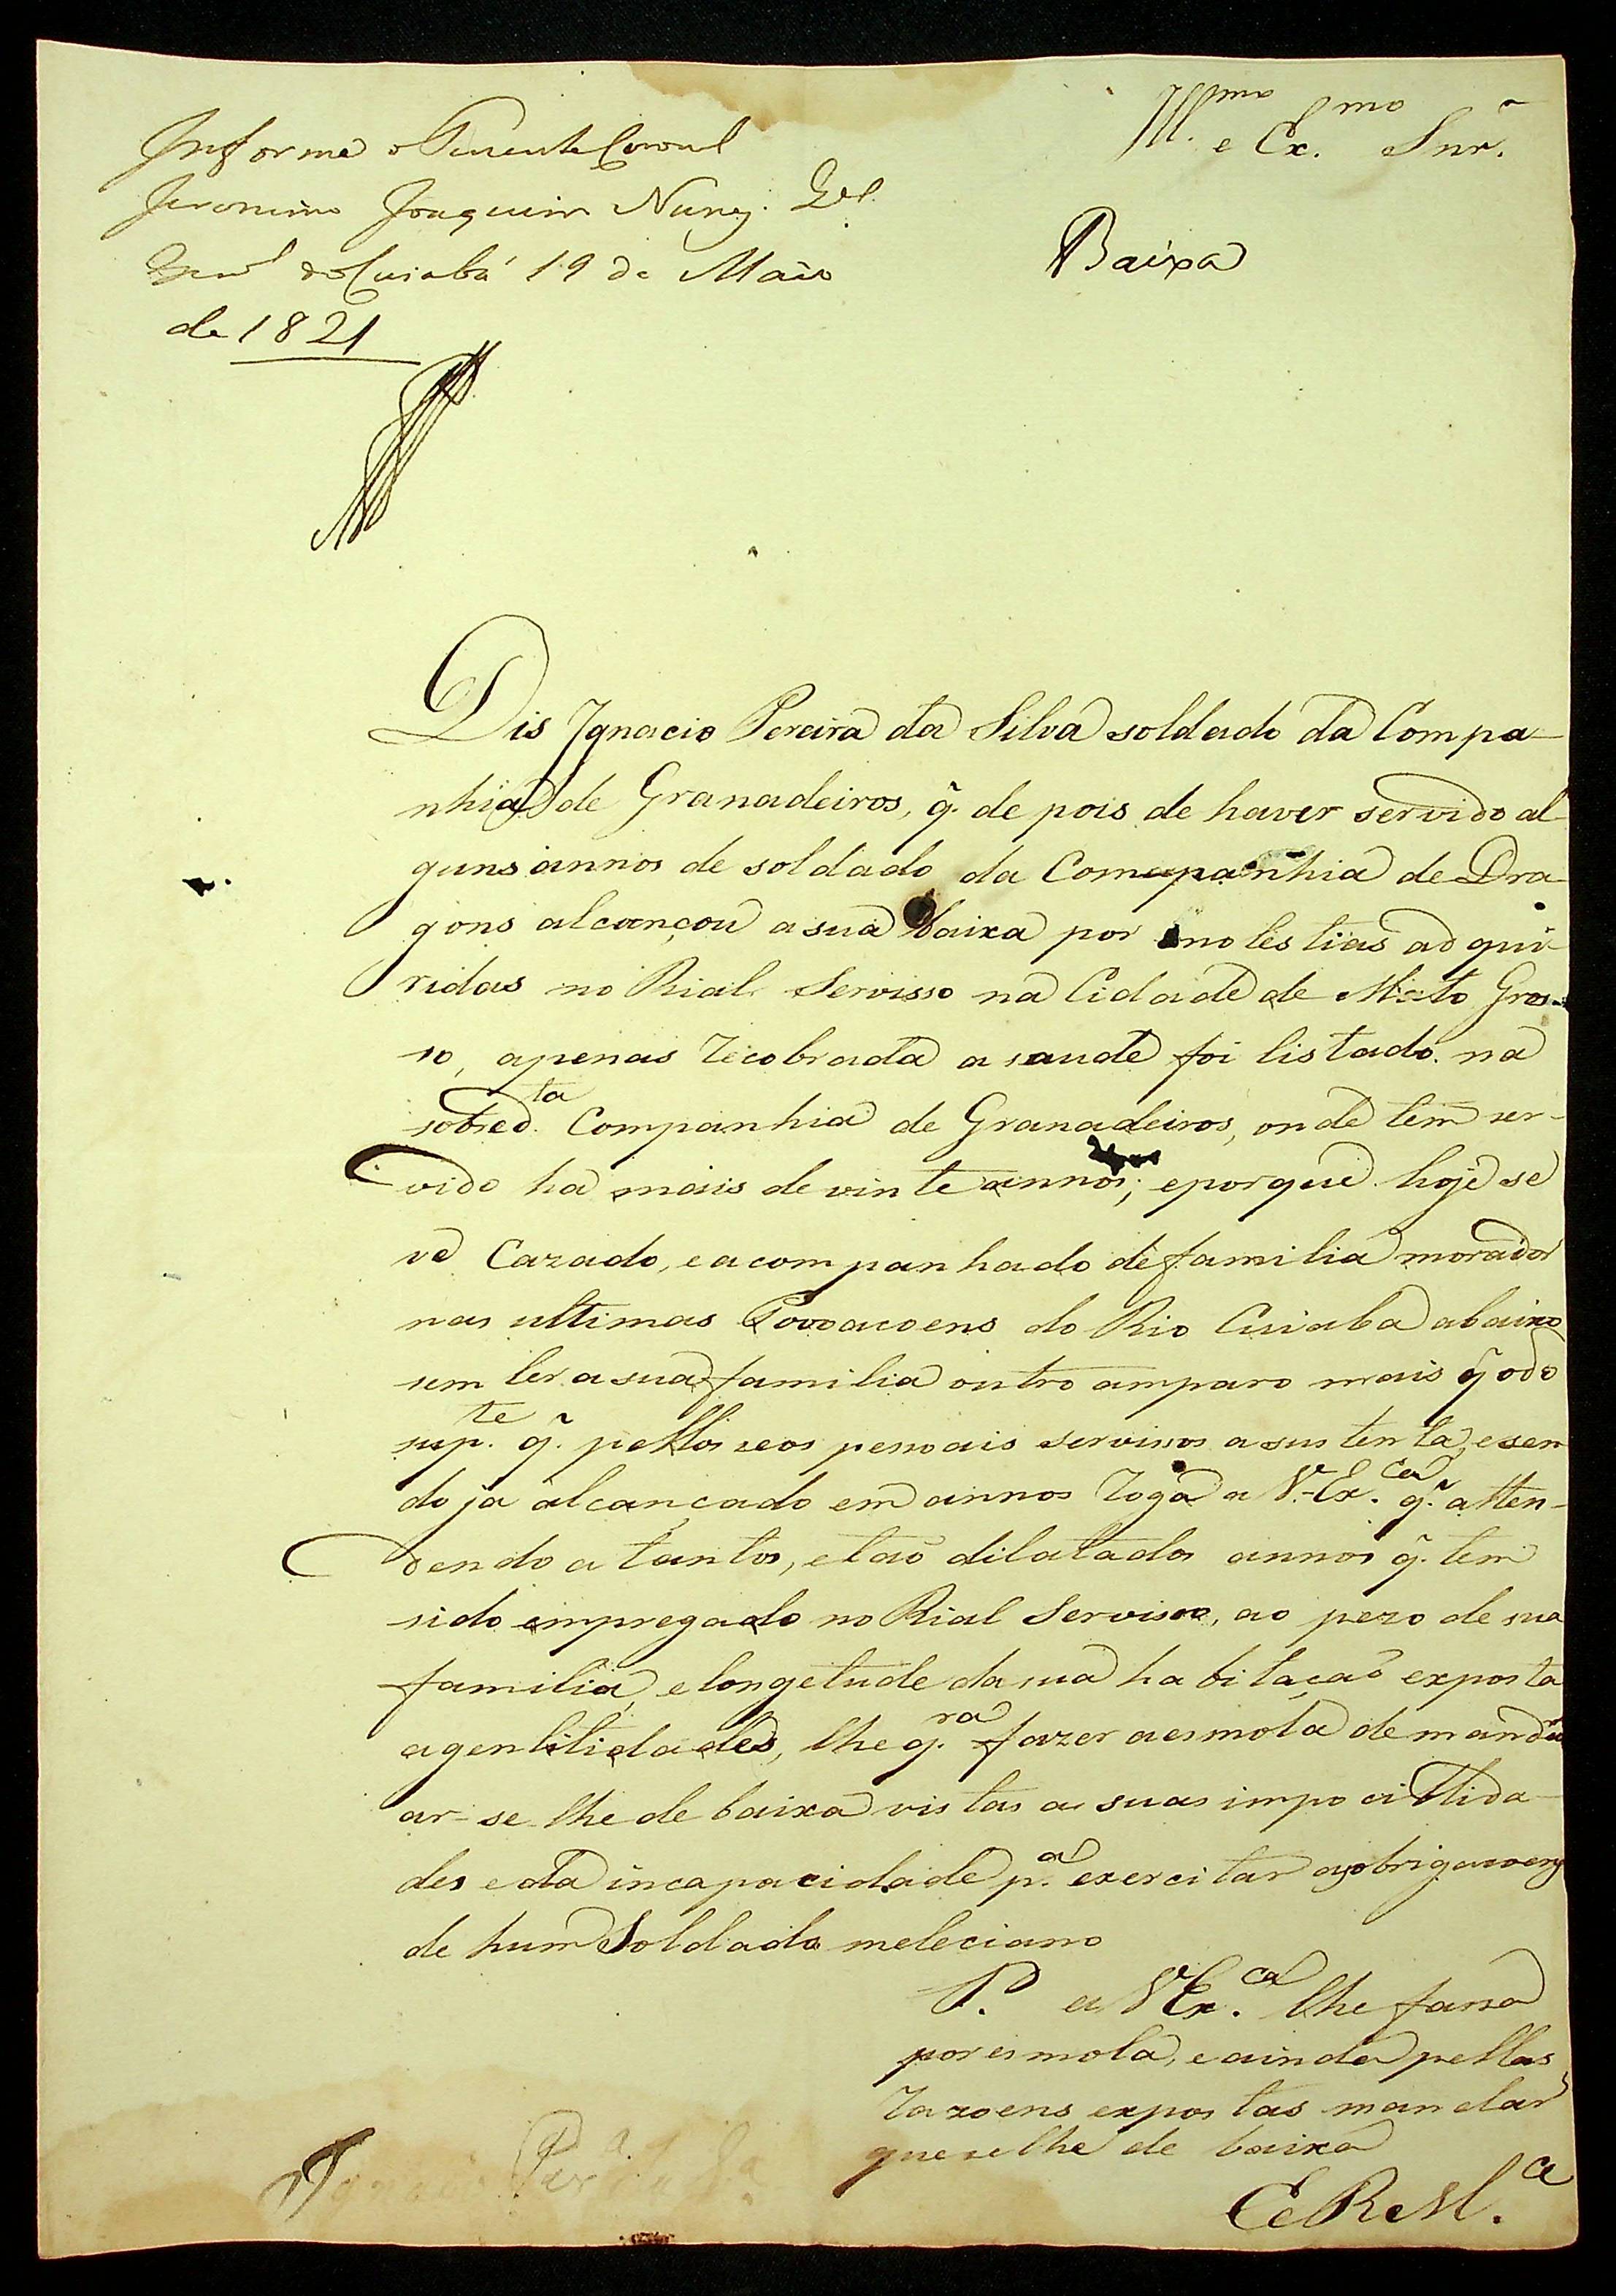 Informe o Tenente Coronel
Jeronimo Joaquim Nunes. Qel.
Gen.l do Cuiabá 19 de Maio
de 1821
Ill.mo e Ex.mo Snr.
Baixa
Dis Ignacio Pereira da Silva soldado da Compa-
nhia de Granadeiros, q̃. de pois de haver servido al-
guns annos de soldado da Comapanhia de Dra-
gons alcançou a sua baixa por molestias adqui-
ridas no Rial Servisso na Cidade de Mato Gros-
so, apenas recobrada a saude foi listado na
sobred.ta Companhia de Granadeiros, onde tem ser-
vido ha mais de vinte annos; e porque hoje se
vê Cazado, e acompanhado de familia morador
nas ultimas Povoacoens do Rio Cuiaba abaixo
sem ter a sua familia outro amparo mais q̃ o do
sup.te q̃. pellos seos pessoais servissos a sustenta, e sen-
do ja alcançado em annos roga a V. Ex.ca q̃. atten-
dendo a tantos, e taõ dilatados annos q̃. tem
sido empregado no Rial Servisso, ao pezo de sua
familia, e longetude da sua habitaçaõ exposta
a gentilidades, lhe q.ra fazer a esmola de mandar
ar-se lhe de baixa vistas as suas impocibilida-
des e da incapacidade p.a exercitar as obrigacoens
de hum Soldado meleciano
P. a V Ex.ca lhe fassa
por esmola, e ainda pellas
razoens expostas mandar
que se lhe de baixa
E R M.ce
Ignacio Per.a da S.a